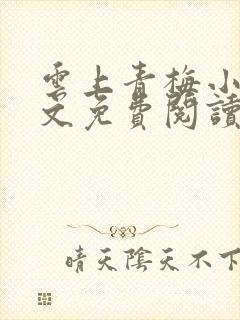 雲上青梅小
文免費閱讀
晴天陰天不下